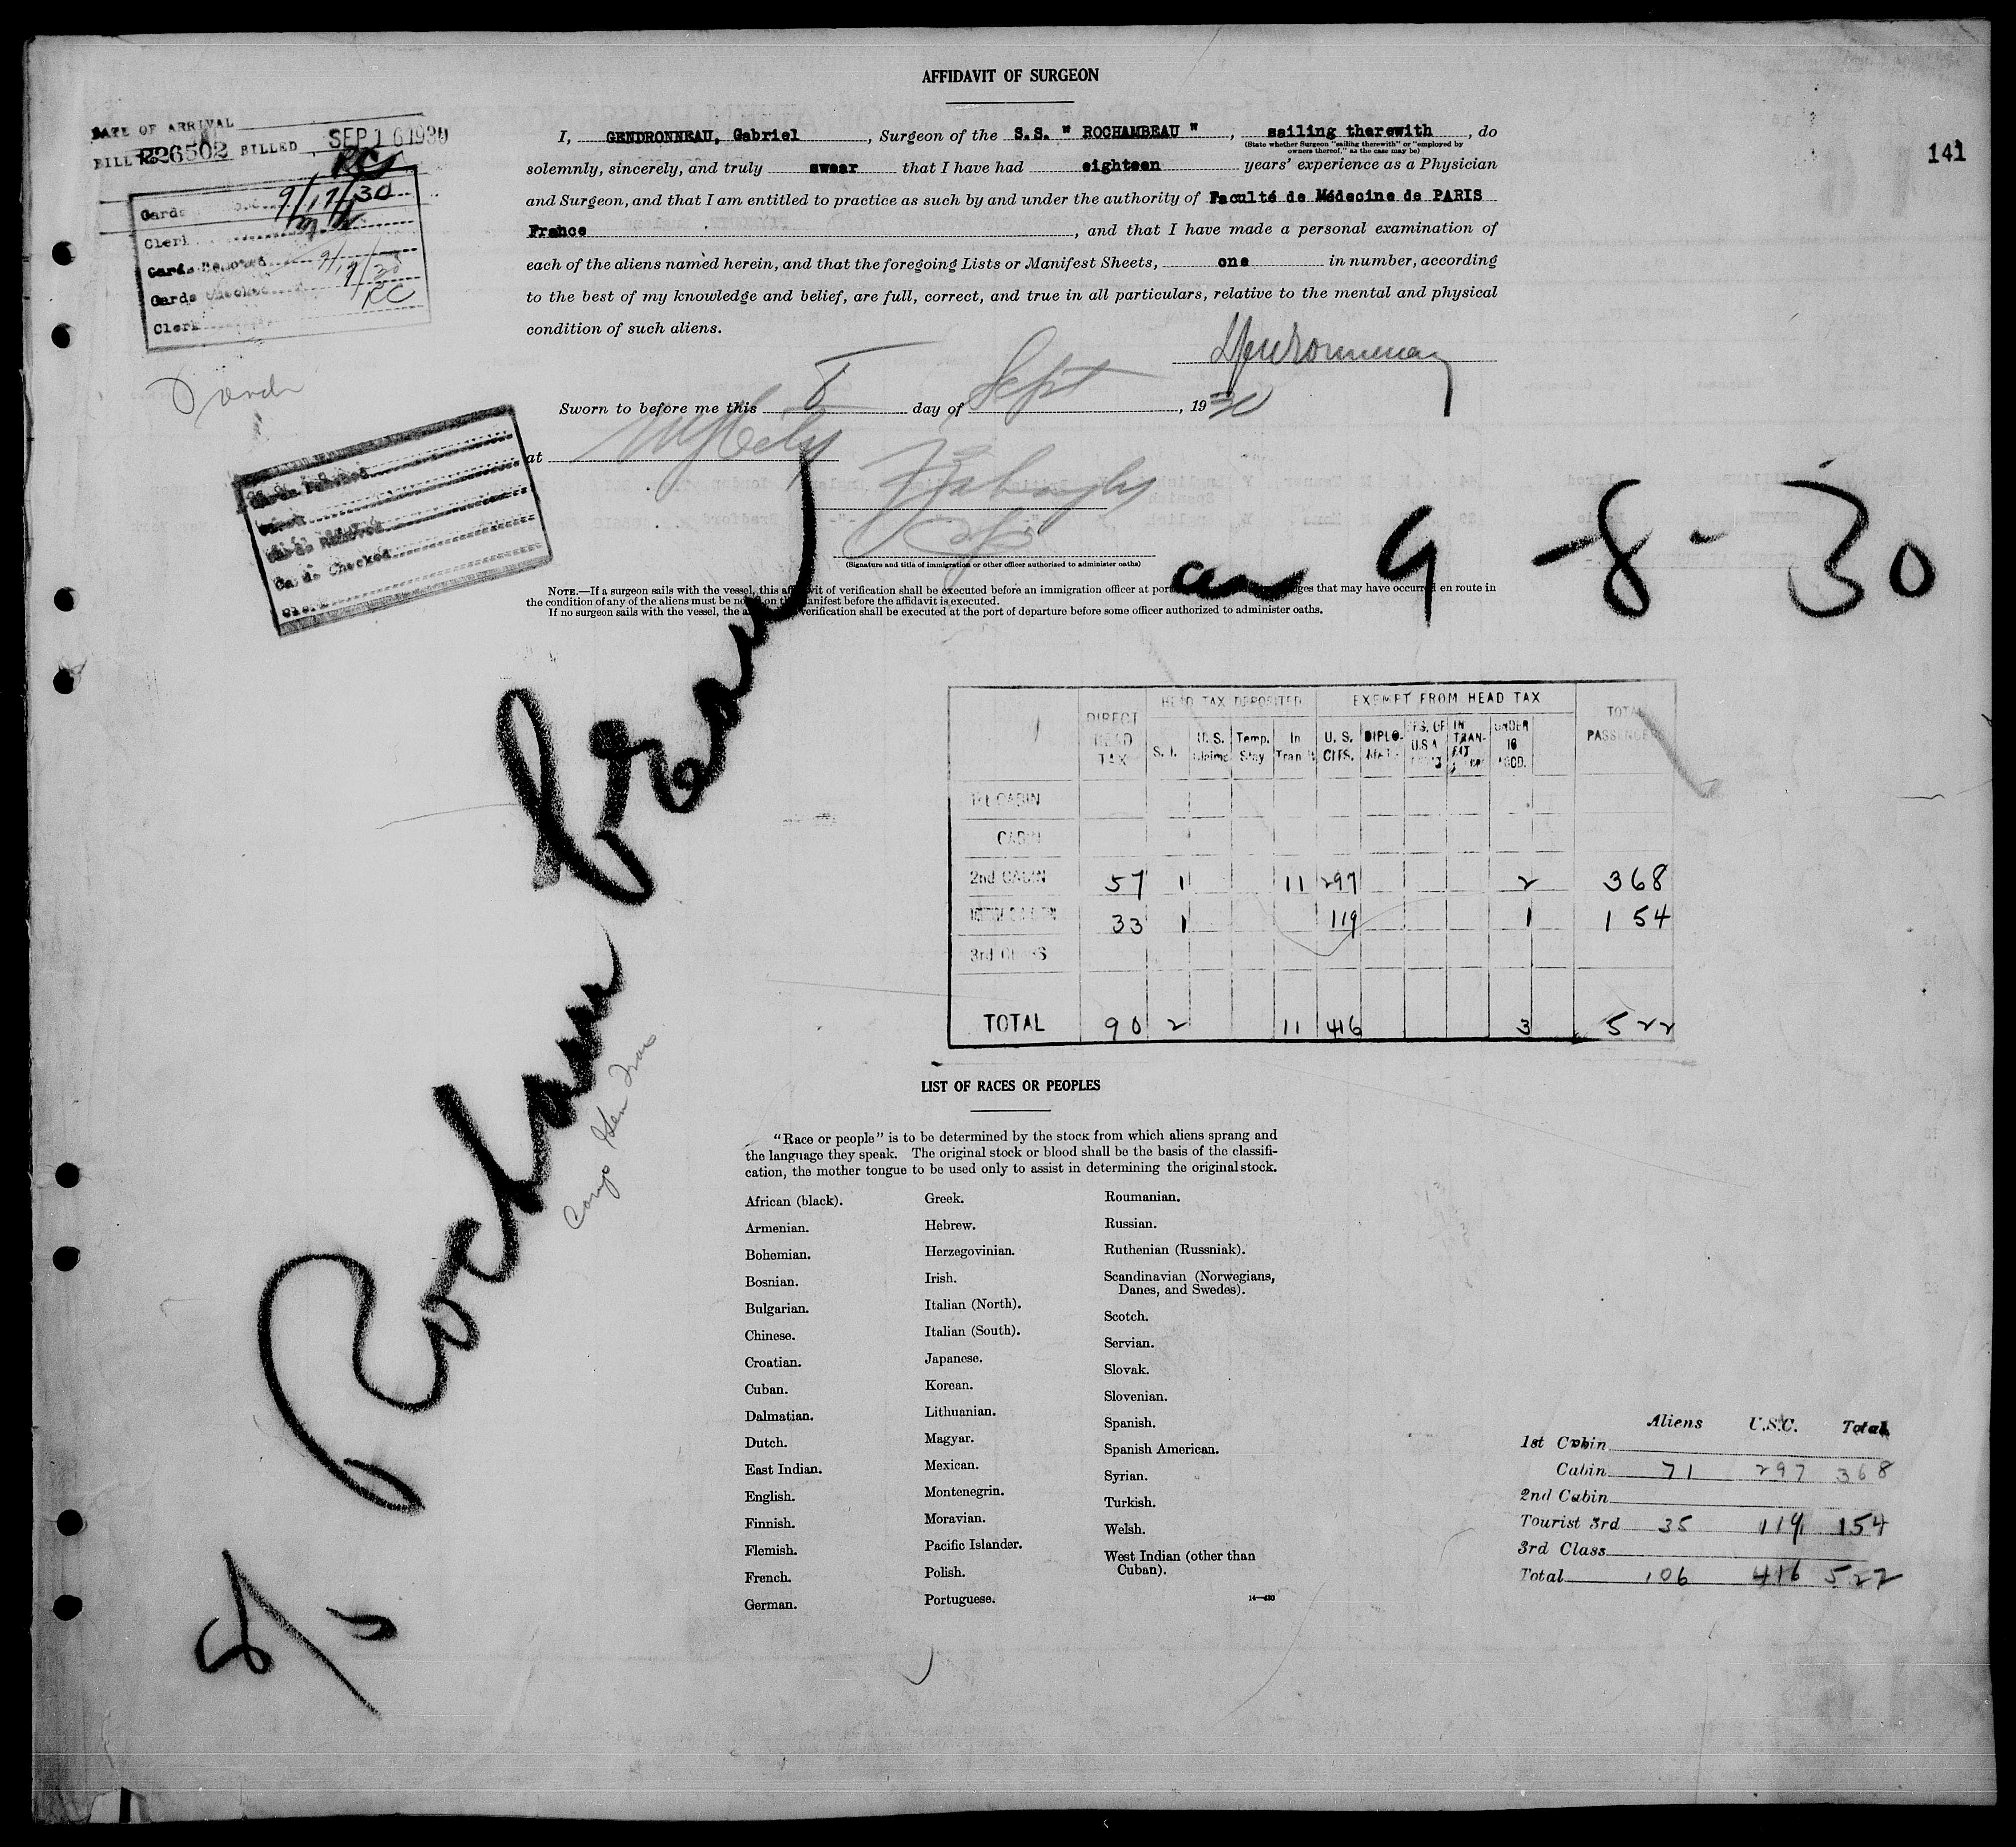 AFFIDAVIT OF SURGEON
DATE OF ARRIVAL
BILL No. 226502 BILLED SEP 16 1930
RC
Cards
9/17/30
Clerk
Cards Removed 9/19/30
Cards Checked RC
Clerk
141
I, GENDRONNEAU, Gabriel, Surgeon of the S.S. " ROCHAMBEAU ", sailing therewith, do
(State whether Surgeon "sailing therewith" or "employed by
owners thereof," as the case may be)
solemnly, sincerely, and truly swear that I have had eighteen years' experience as a Physician
and Surgeon, and that I am entitled to practice as such by and under the authority of Faculté de Médecine de PARIS
France, and that I have made a personal examination of
each of the aliens named herein, and that the foregoing Lists or Manifest Sheets, one in number, according
to the best of my knowledge and belief, are full, correct, and true in all particulars, relative to the mental and physical
condition of such aliens.
Sworn to before me this 8 day of Sept, 1930
at NY City
(Signature and title of immigration or other officer authorized to administer oaths)
Cards Punched
Clerk
Cards Removed
Cards Checked
Clerk
arr 9-8-30
NOTE.—If a surgeon sails with the vessel, this affidavit of verification shall be executed before an immigration officer at port ges that may have occurred en route in
the condition of any of the aliens must be noted on the manifest before the affidavit is executed.
If no surgeon sails with the vessel, the verification shall be executed at the port of departure before some officer authorized to administer oaths.
S/S Rochambeau
Comp Gen Trans
DIRECT HEAD TAX HEAD TAX DEPOSITED EXEMPT FROM HEAD TAX TOTAL PASSENGERS
S. I. U. S. Claims Temp. Stay In Transit U. S. CITS. DIPLOMATS RES. OF U.S.A. IN TRANSIT UNDER 16 ACCD.
1st CABIN
CABIN
2nd CABIN 57 1 11 297 2 368
33 1 119 1 154
3rd CLASS
TOTAL 90 2 11 416 3 522
LIST OF RACES OR PEOPLES
"Race or people" is to be determined by the stock from which aliens sprang and
the language they speak. The original stock or blood shall be the basis of the classifi-
cation, the mother tongue to be used only to assist in determining the original stock.
African (black).
Armenian.
Bohemian.
Bosnian.
Bulgarian.
Chinese.
Croatian.
Cuban.
Dalmatian.
Dutch.
East Indian.
English.
Finnish.
Flemish.
French.
German.
Greek.
Hebrew.
Herzegovinian.
Irish.
Italian (North).
Italian (South).
Japanese.
Korean.
Lithuanian.
Magyar.
Mexican.
Montenegrin.
Moravian.
Pacific Islander.
Polish.
Portuguese.
Roumanian.
Russian.
Ruthenian (Russniak).
Scandinavian (Norwegians,
Danes, and Swedes).
Scotch.
Servian.
Slovak.
Slovenian.
Spanish.
Spanish American.
Syrian.
Turkish.
Welsh.
West Indian (other than
Cuban).
14—430
Aliens U.S.C. Total
1st Cabin
Cabin 71 297 368
2nd Cabin
Tourist 3rd 35 119 154
3rd Class
Total 106 416 522